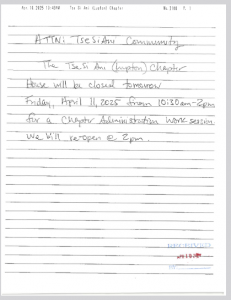 Apr 10 2025 12:44PM Tse Si Ani (Lupton) Chapter No.2388 P. 1
ATTN: TseSiAni Community
The Tse Si Ani (Lupton) Chapter
House will be closed tomorrow
Friday, April 11, 2025 from 10:30am-2pm
for a Chapter Administration work session.
We will re-open @ 2pm.